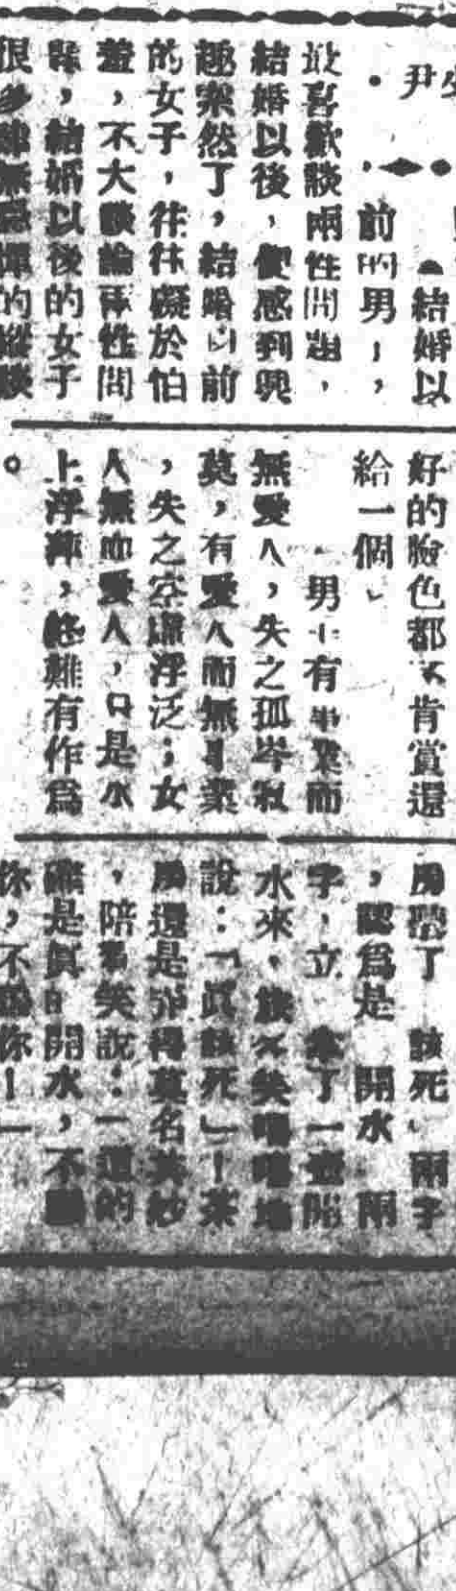 尹
結婚以
前的男
最喜歡談兩性問題，
結婚以後，便感到興
趣索然了，結婚以前
的女子，往往礙於怕
羞，不大談論兩性問
題，結婚以後的女子
很多肆無忌憚的縱談
。
好的臉色都不肯賞還
給一個」
男子有事業而
無愛人，失之孤岑寂
莫，有愛人而無事業
，失之空虛浮泛；女
人無愛人，只是水
上浮萍，終難有作為
該死」兩字
，認為是 開水 兩
字，立 拿了一壺開
水來，笑嘻嘻地
說：「真該死」！茶
房還是弄得莫名其妙
，陪着笑說：「這的
確是真的開水，不騙
你，不騙你！」